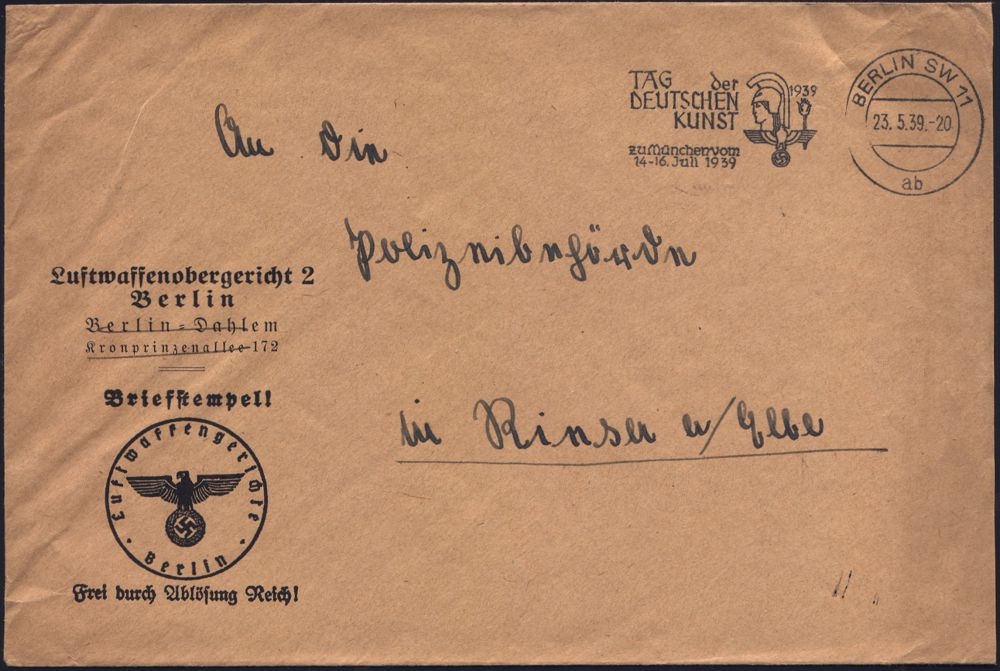 TAG der
DEUTSCHEN
KUNST
1939
zu München vom
14-16. Juli 1939
BERLIN SW 11
23. 5. 39.-20
ab
An die
Polizeibehörde
in Riesa a/Elbe
Luftwaffenobergericht 2
Berlin
Berlin-Dahlem
Kronprinzenallee 172
Briefstempel!
Luftwaffengerichte
Berlin
Frei durch Ablösung Reich!